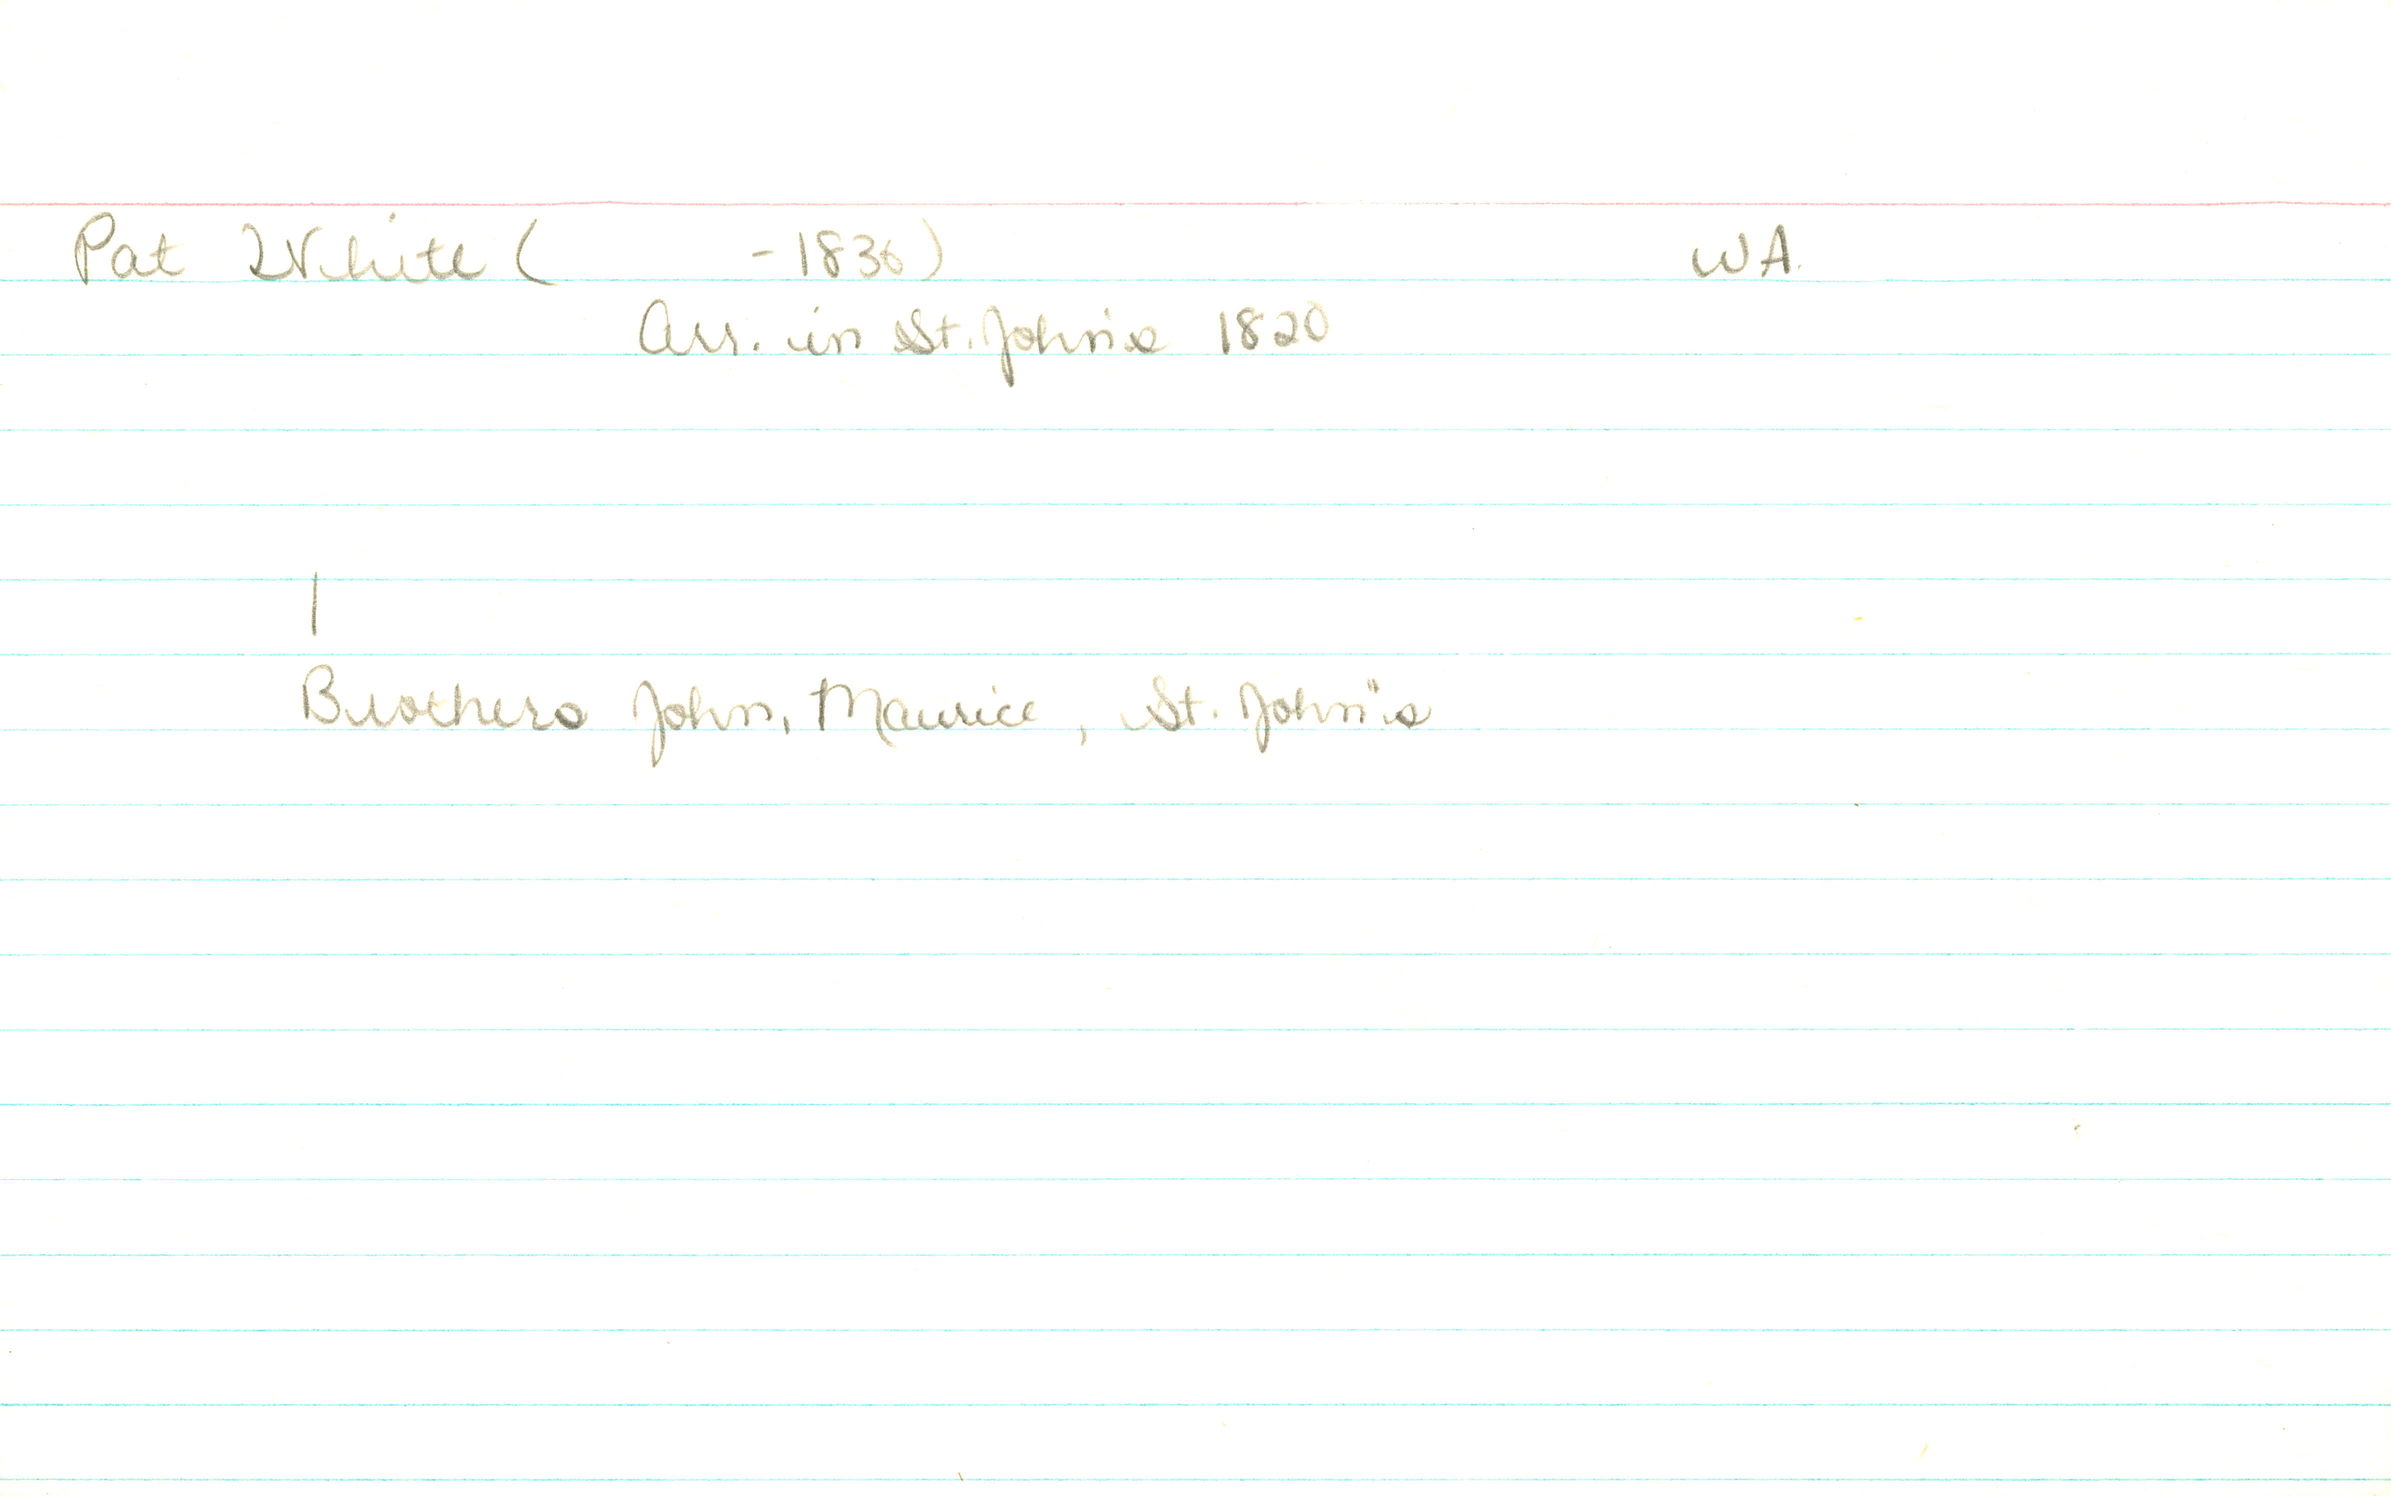 Pat White ( - 1836) WA.
Arr. in St. John's 1820
|
Brothers John, Maurice, St. John's